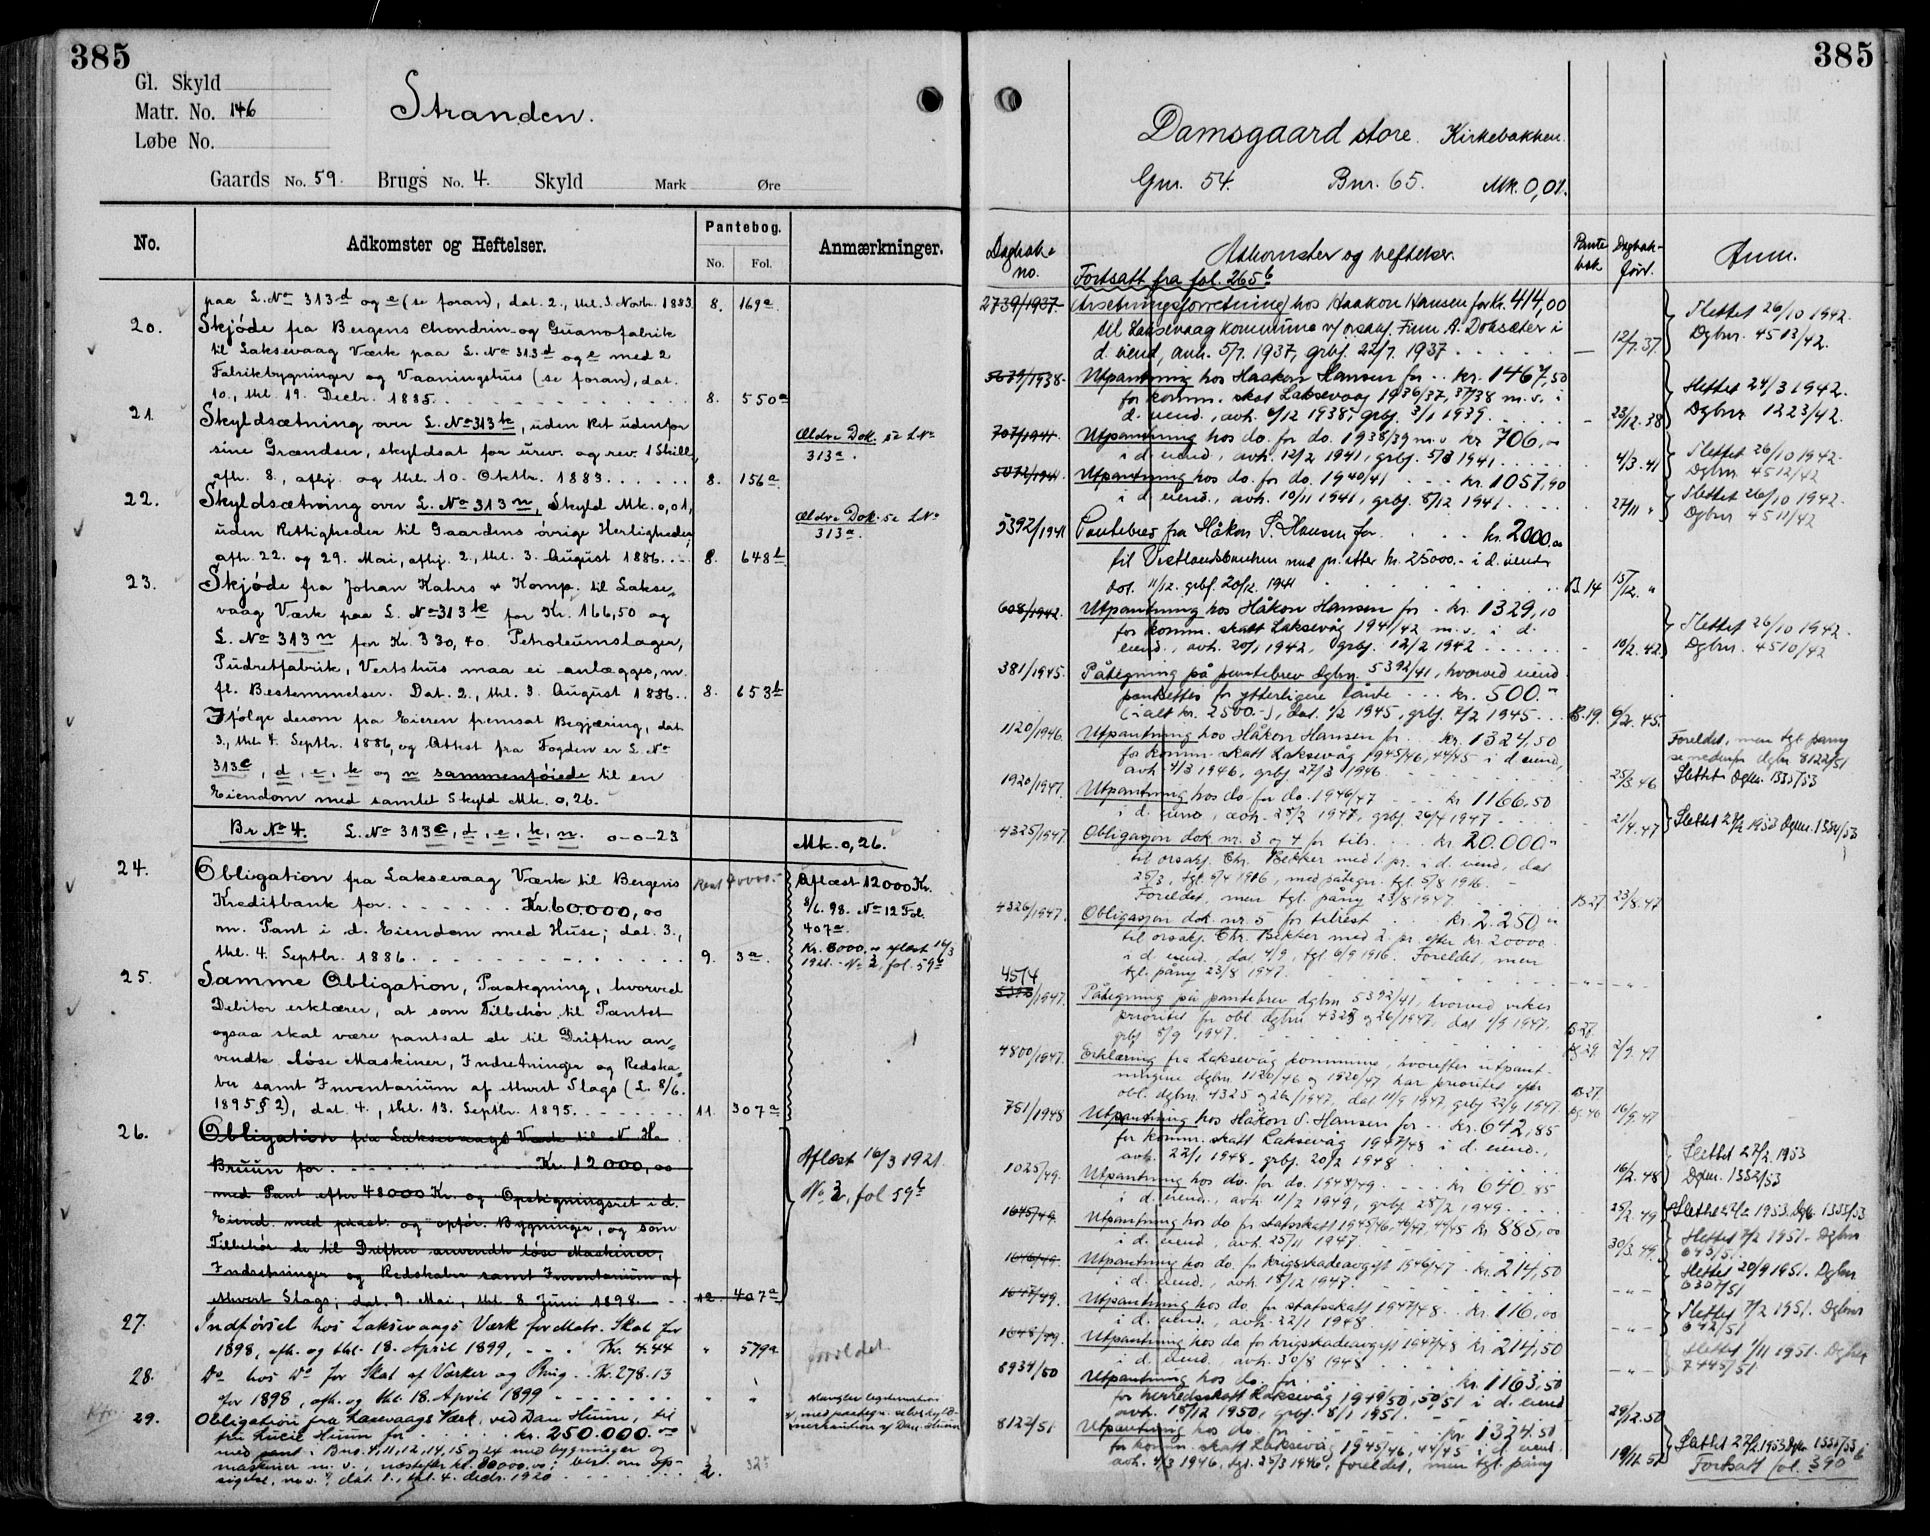 385
Gl. Skyld
Matr. No. 146
Løbe No.
Stranden.
Gaards No. 59. Brugs No. 4. Skyld Mark Øre
No. Adkomster og Heftelser. Pantebog. No. Fol. Anmærkninger.
paa L. No 313d og e (se foran), dat. 2., thl. 3. Novbr. 1883. 8. 169a
20. Skjøde fra Bergens Chondrin- og Guanofabrik
til Laksevaag Værk paa L. No 313d og e med 2
Fabrikbygninger og Vaaningshus (se foran), dat.
10., thl. 19. Decbr. 1885. 8. 550a
21. Skyldsætning over L. No 313k, uden Ret udenfor Ældre Dok. se L No
sine Grændser, skyldsat for urev. og rev. 1 Skill., 313a.
afh. 8., afhj. og thl. 10. Oktbr. 1883. 8. 156a
22. Skyldsætning over L. No 313n, Skyld Mk. 0,01, Ældre Dok. se L No
uden Rettigheder til Gaardens øvrige Herligheder, 313a.
afh. 22. og 29. Mai, afhj. 2., thl. 3. August 1886. 8. 648b
23. Skjøde fra Johan Kahrs & Komp. til Lakse-
vaag Værk paa L. No 313k for Kr. 166,50 og
L. No 313n for Kr. 330,40. Petroleumslager,
Pudretfabrik, Vertshus maa ei anlægges, m.
fl. Bestemmelser. Dat. 2., thl. 3. August 1886. 8. 653b
Ifølge derom fra Eieren fremsat Begjæring, dat.
3., thl. 4. Septbr. 1886, og Attest fra Fogden er L. No
313c, d, e, k og n sammenføiede til en
Eiendom med samlet Skyld Mk. 0,26.
Br No 4. L. No 313c, d, e, k, n. 0-0-23 Mk. 0,26.
24. Obligation fra Laksevaag Værk til Bergens Aflæst 12000 Kr.
Kreditbank for Kr. 60.000,00 8/6. 98. No 12 Fol.
m. Pant i d. Eiendom med Huse; dat. 3., 407a.
thl. 4. Septbr. 1886. 9. 3a. Kr. 8000.- aflæst 16/3
1921. No 2, fol. 59b
25. Samme Obligation, Paategning, hvorved
Debitor erklærer, at som Tilbehør til Pantet
ogsaa skal være pantsat de til Driften an-
vendte løse Maskiner, Indretninger og Redska-
ber samt Inventarium af ethvert Slags (L. 8/6.
1895, § 2), dat. 4., thl. 13. Septbr. 1895. 11. 307a
26. Obligation fra Laksevaags Værk til N. H.
Bruun for Kr. 12000,00 Aflæst 16/3 1921.
med Pant efter 48000 Kr. og Opsigningsret i d. No 2, fol 59b
Eiend. med paast. og opfør. Bygninger, og som
Tilbehør de til Driften anvendte løse Maskiner,
Indretninger og Redskaber samt Inventarium af
ethvert Slags; dat. 9. Mai, thl. 8. Juni 1898. 12. 407a
27. Indførsel hos Laksevaags Værk for Matr. Skat for
1898, afh. og thl. 18. April 1899, Kr. 4.44 " 579a forældet
28. Do hos Do for Skat af Værker og Brug. Kr. 278.13
for 1898, afh. og thl. 18. April 1899 " "
29. Obligation fra Laxevaags Værk, ved Dan Huun, til
fru Lucie Huun for kr. 250.000.00
med pant i Bno. 4, 11, 12, 14, 15 og 24 med bygninger og
maskiner m. v., næstefter kr. 80000.00; best. om op-
sigelse, m. v., dat. 1., tgl. 4. decbr. 1920 2. 325
385
Damsgaard store. Kirkebakken.
Gnr. 54. Bnr. 65. Mk. 0,01.
Dagboks no. Atkomster og heftelser. Pante bok Dagbok- ført. Anm.
Fortsatt fra fol. 265b
2739/1937. Utsetningsforretning hos Haakon Hansen for kr. 414,00 Slettet 26/10 1942.
til Laksevaag kommune v/ orsakf. Finn A. Doksæter i 12/7.37. Dgbnr. 4513/42.
d. eiend., avh. 5/7. 1937, grbf. 22/7. 1937
5679/1938. Utpantning hos Haakon Hansen for kr. 1467,50 Slettet 24/3 1942.
for komm. skat Laksevaag 1936/37, 37/38 m. v. i 23/12.38 Dgbnr. 1223/42.
d. eiend., avh. 6/12 1938, grbf. 3/1 1939.
707/1941. Utpantning hos do. for do. 1938/39 m. v. kr. 706,00 Slettet 26/10 1942.
i d. eiend., avh. 12/2 1941, grbf. 5/3 1941. 4/3.41 Dgbnr. 4512/42
5072/1941 Utpantning hos do. for do. 1940/41 kr. 1057,90 Slettet 26/10 1942.
i d. eiend., avh. 10/11 1941, grbf. 8/12 1941. 27/11 " Dgbnr. 4511/42
5392/1941 Pantebrev fra Håkon S. Hansen for kr. 2000.00
til Vestlandsbanken med pr. etter kr. 25000.- i d. eiend.
dat. 11/12. grbf. 20/12. 1941 B. 14 15/12. "
608/1942. Utpantning hos Håkon Hansen for kr. 1329,10 Slettet 26/10 1942.
for komm. skatt Laksevåg 1941/42 m. v. i d.
eiend., avh. 20/1 1942, grbf. 12/2 1942 10/2.42. Dgbnr. 4510/42
381/1945. Påtegning på pantebrev dgbnr. 5392/41, hvorved eiend.
pantsettes for ytterligere lånte kr. 500.-
(i alt kr. 2500.-), dat. 1/2 1945, grbf. 7/2 1945 B. 19. 6/2.45.
1120/1946. Utpantning hos Håkon Hansen for kr. 1324,50 Foreldet, men tgl. påny
for komm. skatt Laksevåg 1945/46, 44/45 i d. eiend., se nedenfor dgbnr. 8122/51
avh. 4/3 1946, grbf. 27/3 1946. 25/3.46 Slettet Dgbnr. 1335/53
1920/1947. Utpantning hos do. for do. 1946/47 kr. 1166,50
i d. eiend., avh. 28/2 1947, grbf. 26/4 1947 21/4.47 Slettet 27/2 1953 Dgbnr. 1334/53
4325/1947. Obligasjon dok. nr. 3 og 4 for tils. kr. 20.000.-
til orsakf. Chr. Bekker med 1. pr. i d. eiend., dat
25/3, tgl. 5/4 1916, med påtegn. tgl. 5/8 1916.
Foreldet, men tgl. påny 23/8 1947. B 27 23/8.47
4326/1947. Obligasjon dok. nr. 5 for tilrest kr. 2.250.-
til orsakf. Chr. Bekker med 2. pr. efter kr. 20000.
i d. eiend., dat. 4/9, tgl. 6/9 1916. Foreldet, men
tgl. påny 23/8 1947.
4574/1947. Påtegning på pantebrev dgbnr. 5392/41, hvorved vikes
prioritet for obl. dgbnr. 4325 og 26/1947, dat. 1/9 1947,
grbf. 5/9 1947. B 27. 2/9.47
4800/1947. Erklæring fra Laksevåg kommune, hvorefter utpant-
ningene dgbnr. 1120/46 og 1920/47 har prioritet efter
obl. dgbnr. 4325 og 26/1947, dat 11/9 1947, grbf. 22/9 1947. B 27. 16/9.47
751/1948 Utpantning hos Håkon S. Hansen for kr. 642,85
for komm. skatt Laksevåg 1947/48 i d. eiend., Slettet 27/2. 1953
avh. 22/1 1948, grbf. 20/2 1948 16/2.48 Dgbnr. 1332/53
1025/49. Utpantning hos do. for do. 1948/49 kr. 640.85
i d. eiend., avh. 11/2 1949, grbf. 28/2 1949 25/2.49 Slettet 27/2 1953. Dgb. 1333/53
1645/49. Utpantning hos do. for statsskatt 1945/46, 46/47, 44/45 kr. 885,00 Slettet 7/2 1951. Dgbnr
i d. eiend., avh. 25/11 1947 30/3.49. 643/51.
1646/49. Utpantning hos do. for krigsskadeavgift 1946/47 kr. 214,50 Slettet 20/9 1951. Dgbnr
i d. eiend., avh. 18/12 1947. 6307/51
1647/49. Utpantning hos do. for statsskatt 1947/48 kr. 116,00 Slettet 7/2 1951. Dgbnr
i d. eiend., avh. 22/1 1948. 642/51
1648/49. Utpantning hos do. for krigsskadeavgift 1947/48 kr. 214,50 Slettet 1/11 1951. Dgbnr
i d. eiend., avh. 30/8 1948 7445/51
8934/50 Utpantning hos do. for kr. 1163,50
for herredsskatt Laksevåg 1949/50, 50/51 i d. eiend
avh. 18/12 1950, grbf. 8/1 1951. 29/12.50
8122/51 Utpantning hos do. for kr. 1324.50
for komm. skatt Laksevåg 1945/46, 44/45 i d. eiend. Slettet 27/2.1953 Dgbnr. 1335/53
avh. 4/3 1946, tgl. 25/3 1946, foreldet, men tgl. påny 19/11.51 Fortsatt fol. 390b